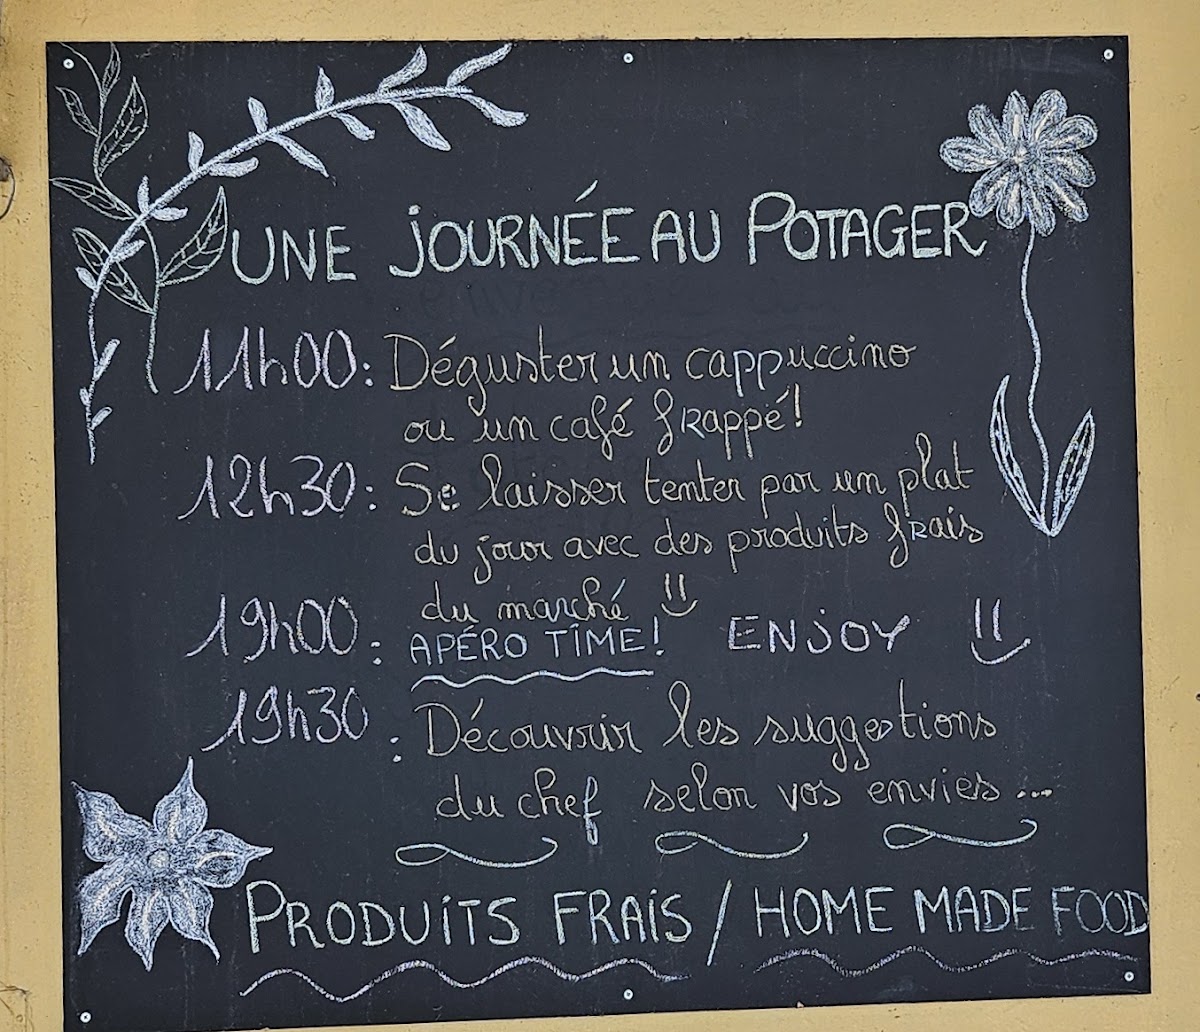 UNE JOURNÉE AU POTAGER
11h00: Déguster un cappuccino
ou un café frappé!
12h30: Se laisser tenter par un plat
du jour avec des produits frais
du marché
19h00: APÉRO TIME! ENJOY
19h30: Découvrir les suggestions
du chef selon vos envies...
PRODUITS FRAIS / HOME MADE FOOD